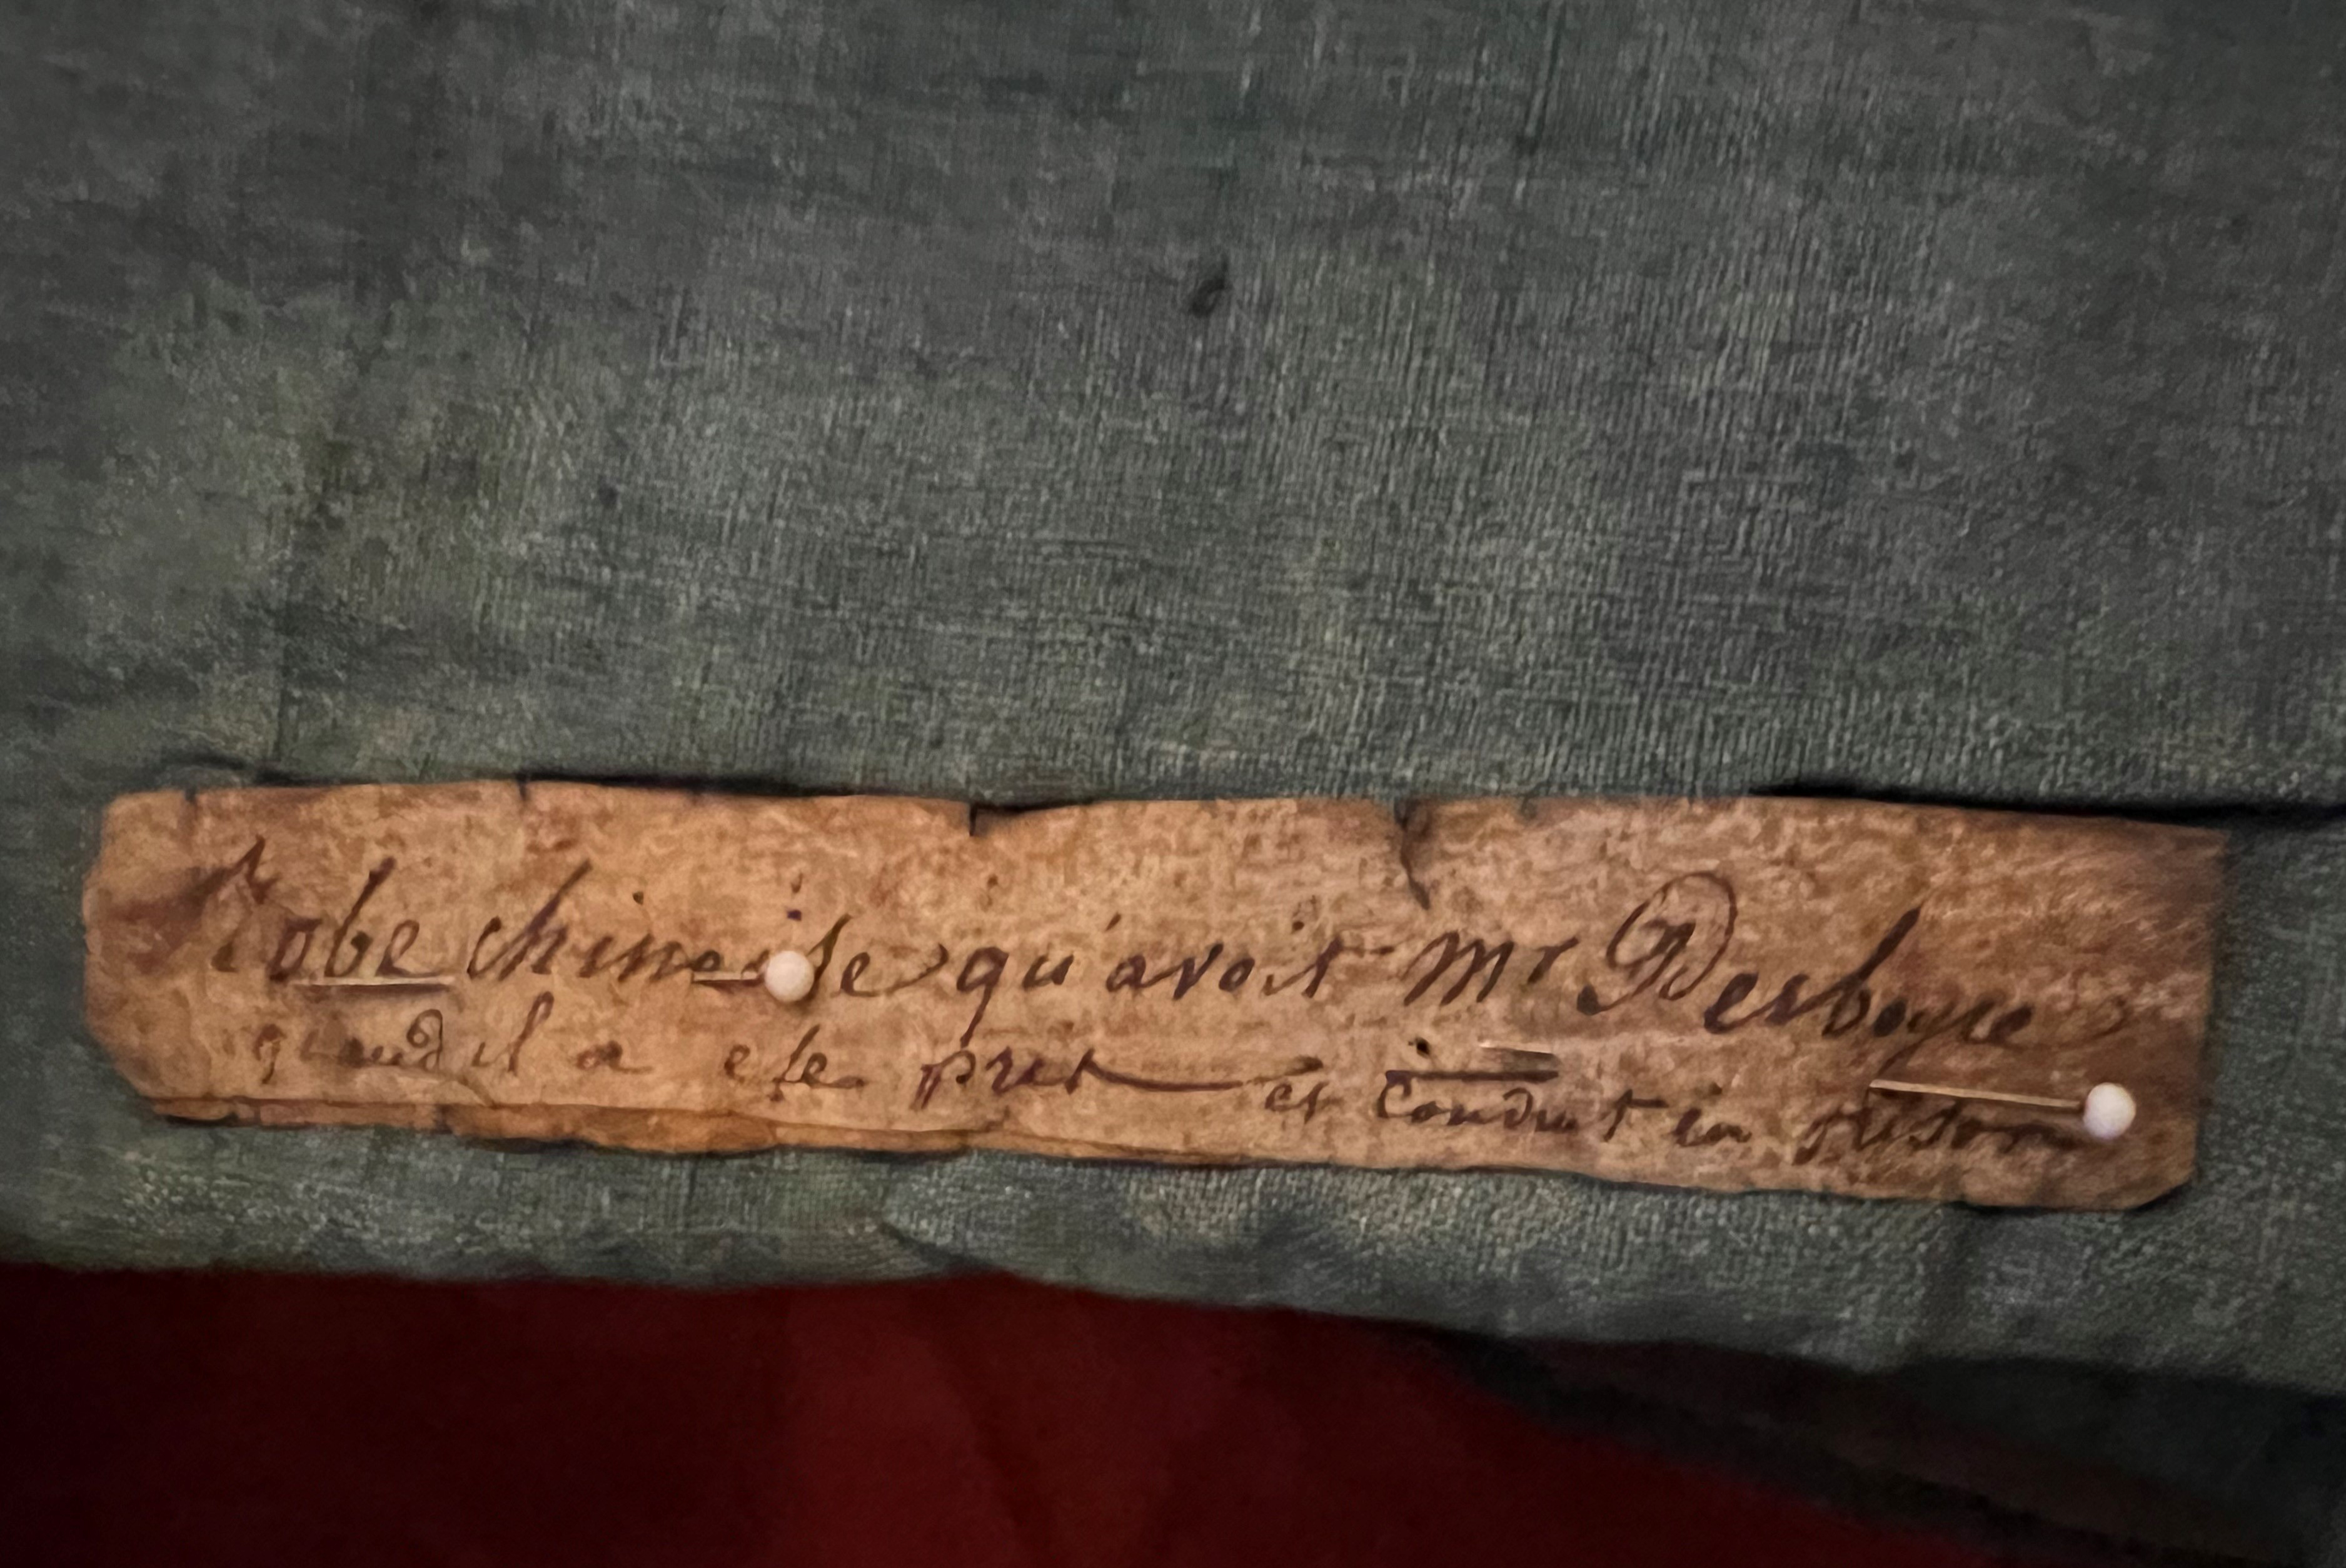 Robe chinoise qu'avoit Mr Desboyre
quand il a ete pris et conduit en prison